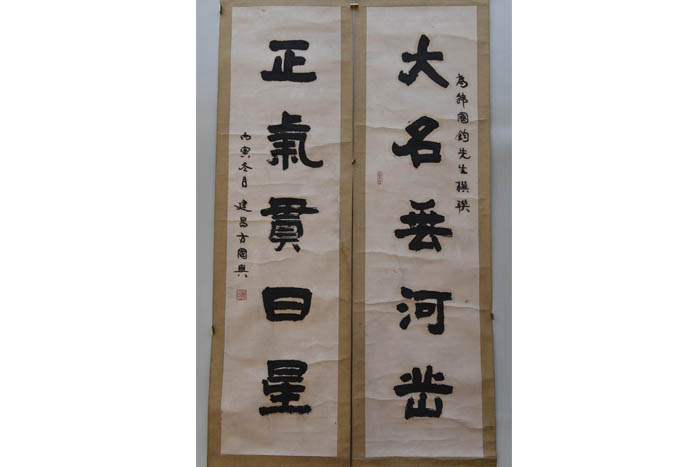 為韓國鈞先生撰聯
大名垂河岳
正氣貫日星
丙寅冬月 建昌方國興